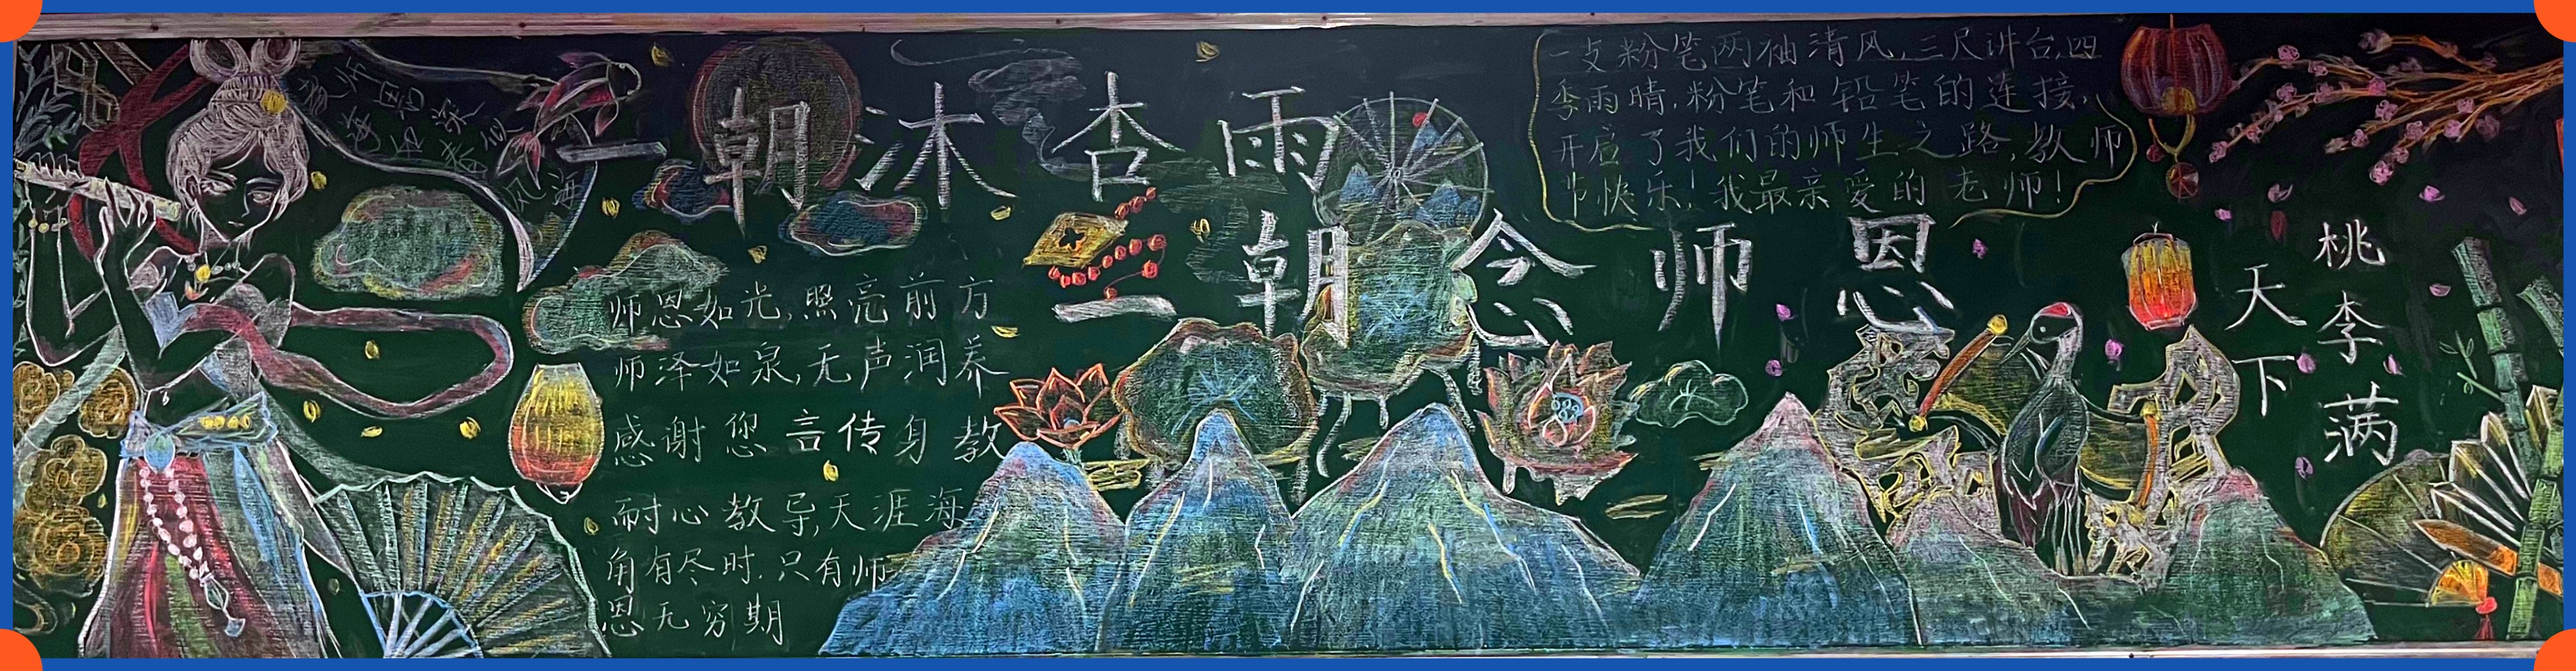 一朝沐杏雨
一朝念师恩
一支粉笔两袖清风,三尺讲台,四
季雨晴,粉笔和铅笔的连接,
开启了我们的师生之路,教师
节快乐!我最亲爱的老师!
师恩如光,照亮前方
师泽如泉,无声润养
感谢您言传身教
耐心教导,天涯海
角有尽时,只有师
恩无穷期
桃李满
天下